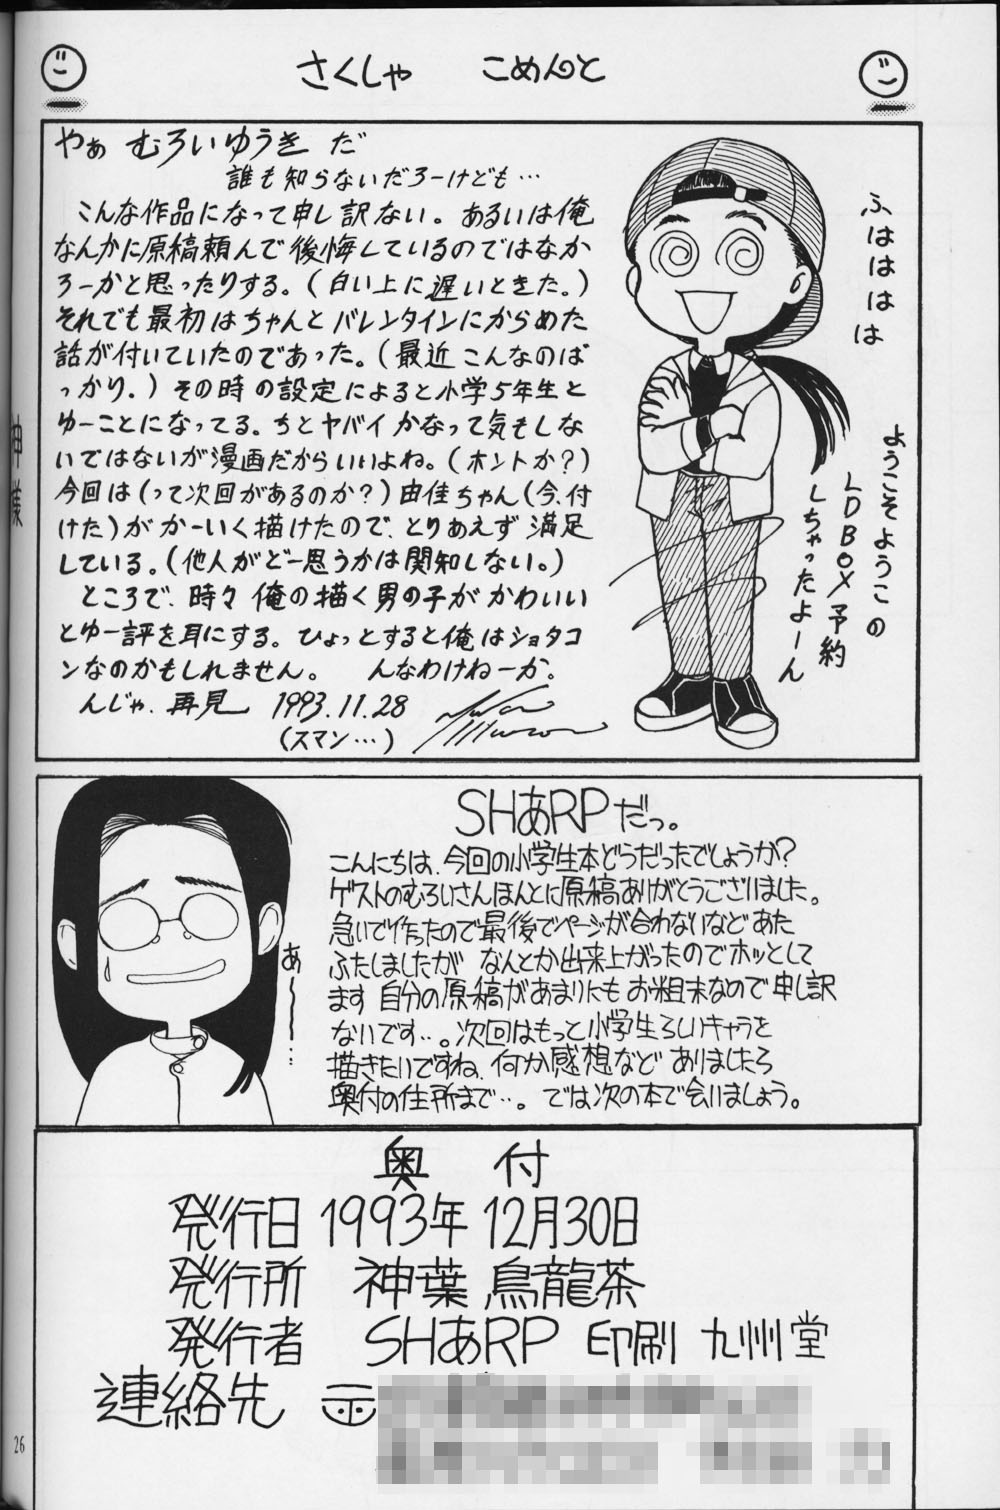 さくしゃ　こめんと
やぁ むろいゆうき だ
誰も知らないだろーけども…
こんな作品になって申し訳ない。あるいは俺
なんかに原稿頼んで後悔しているのではなか
ろーかと思ったりする。(白い上に遅いときた。)
それでも最初はちゃんとバレンタインにからめた
話が付いていたのであった。(最近こんなのば
っかり.)その時の設定によると小学5年生と
ゆーことになってる。ちとヤバイかなって気もしな
いではないが漫画だからいいよね。(ホントか?)
今回は(って次回があるのか?)由佳ちゃん(今、付
けた)がかーいく描けたので、とりあえず満足
している。(他人がどー思うかは関知しない。)
ところで、時々俺の描く男の子がかわいい
とゆー評を耳にする。ひょっとすると俺はショタコ
ンなのかもしれません。　んなわけねーか.
んじゃ.再見　1993.11.28
(スマン…)
ふはははは
ようこそようこの
LDBOX予約
しちゃったよーん
SHあRPだっ。
こんにちは、今回の小学生本どうだったでしょうか?
ゲストのむろいさんほんとに原稿ありがとうございました。
急いで作ったので最後でページが合わないなどあた
ふたしましたが なんとか出来上がったのでホッとして
ます 自分の原稿があまりにもお粗末なので申し訳
ないです…。次回はもっと小学生らしいキャラを
描きたいですね、何か感想など ありましたら
奥付の住所まで…。では次の本で会いましょう。
あ〜〜…
奥付
発行日 1993年 12月30日
発行所　神葉 烏龍茶
発行者　SHあRP 印刷 九州堂
連絡先 〒
神様
26